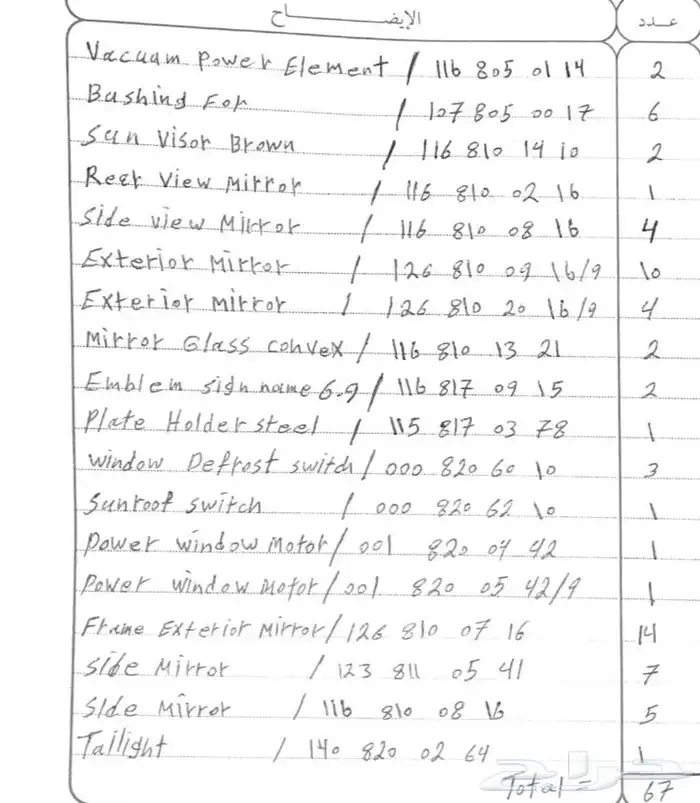 الإيضـــــاح عـــدد
Vacuam Power Element / 116 805 01 14 2
Bushing For / 107 805 00 17 6
Sun Visor Brown / 116 810 14 10 2
Rear View Mirror / 116 810 02 16 1
Side view Mirror / 116 810 08 16 4
Exterior Mirror / 126 810 09 16/9 10
Exterior mirror / 126 810 20 16/9 4
Mirror Glass convex / 116 810 13 21 2
Emblem sign name 6.9 / 116 817 09 15 2
Plate Holder steel / 115 817 03 78 1
window Defrost switch / 000 820 60 10 3
Sunroof switch / 000 820 62 10 1
power window Motor / 001 820 04 42 1
power window Motor / 001 820 05 42/9 1
Frame Exterior Mirror / 126 810 07 16 14
side Mirror / 123 811 05 41 7
Side Mirror / 116 810 08 16 5
Tailight / 140 820 02 64 1
Total = 67
حراج